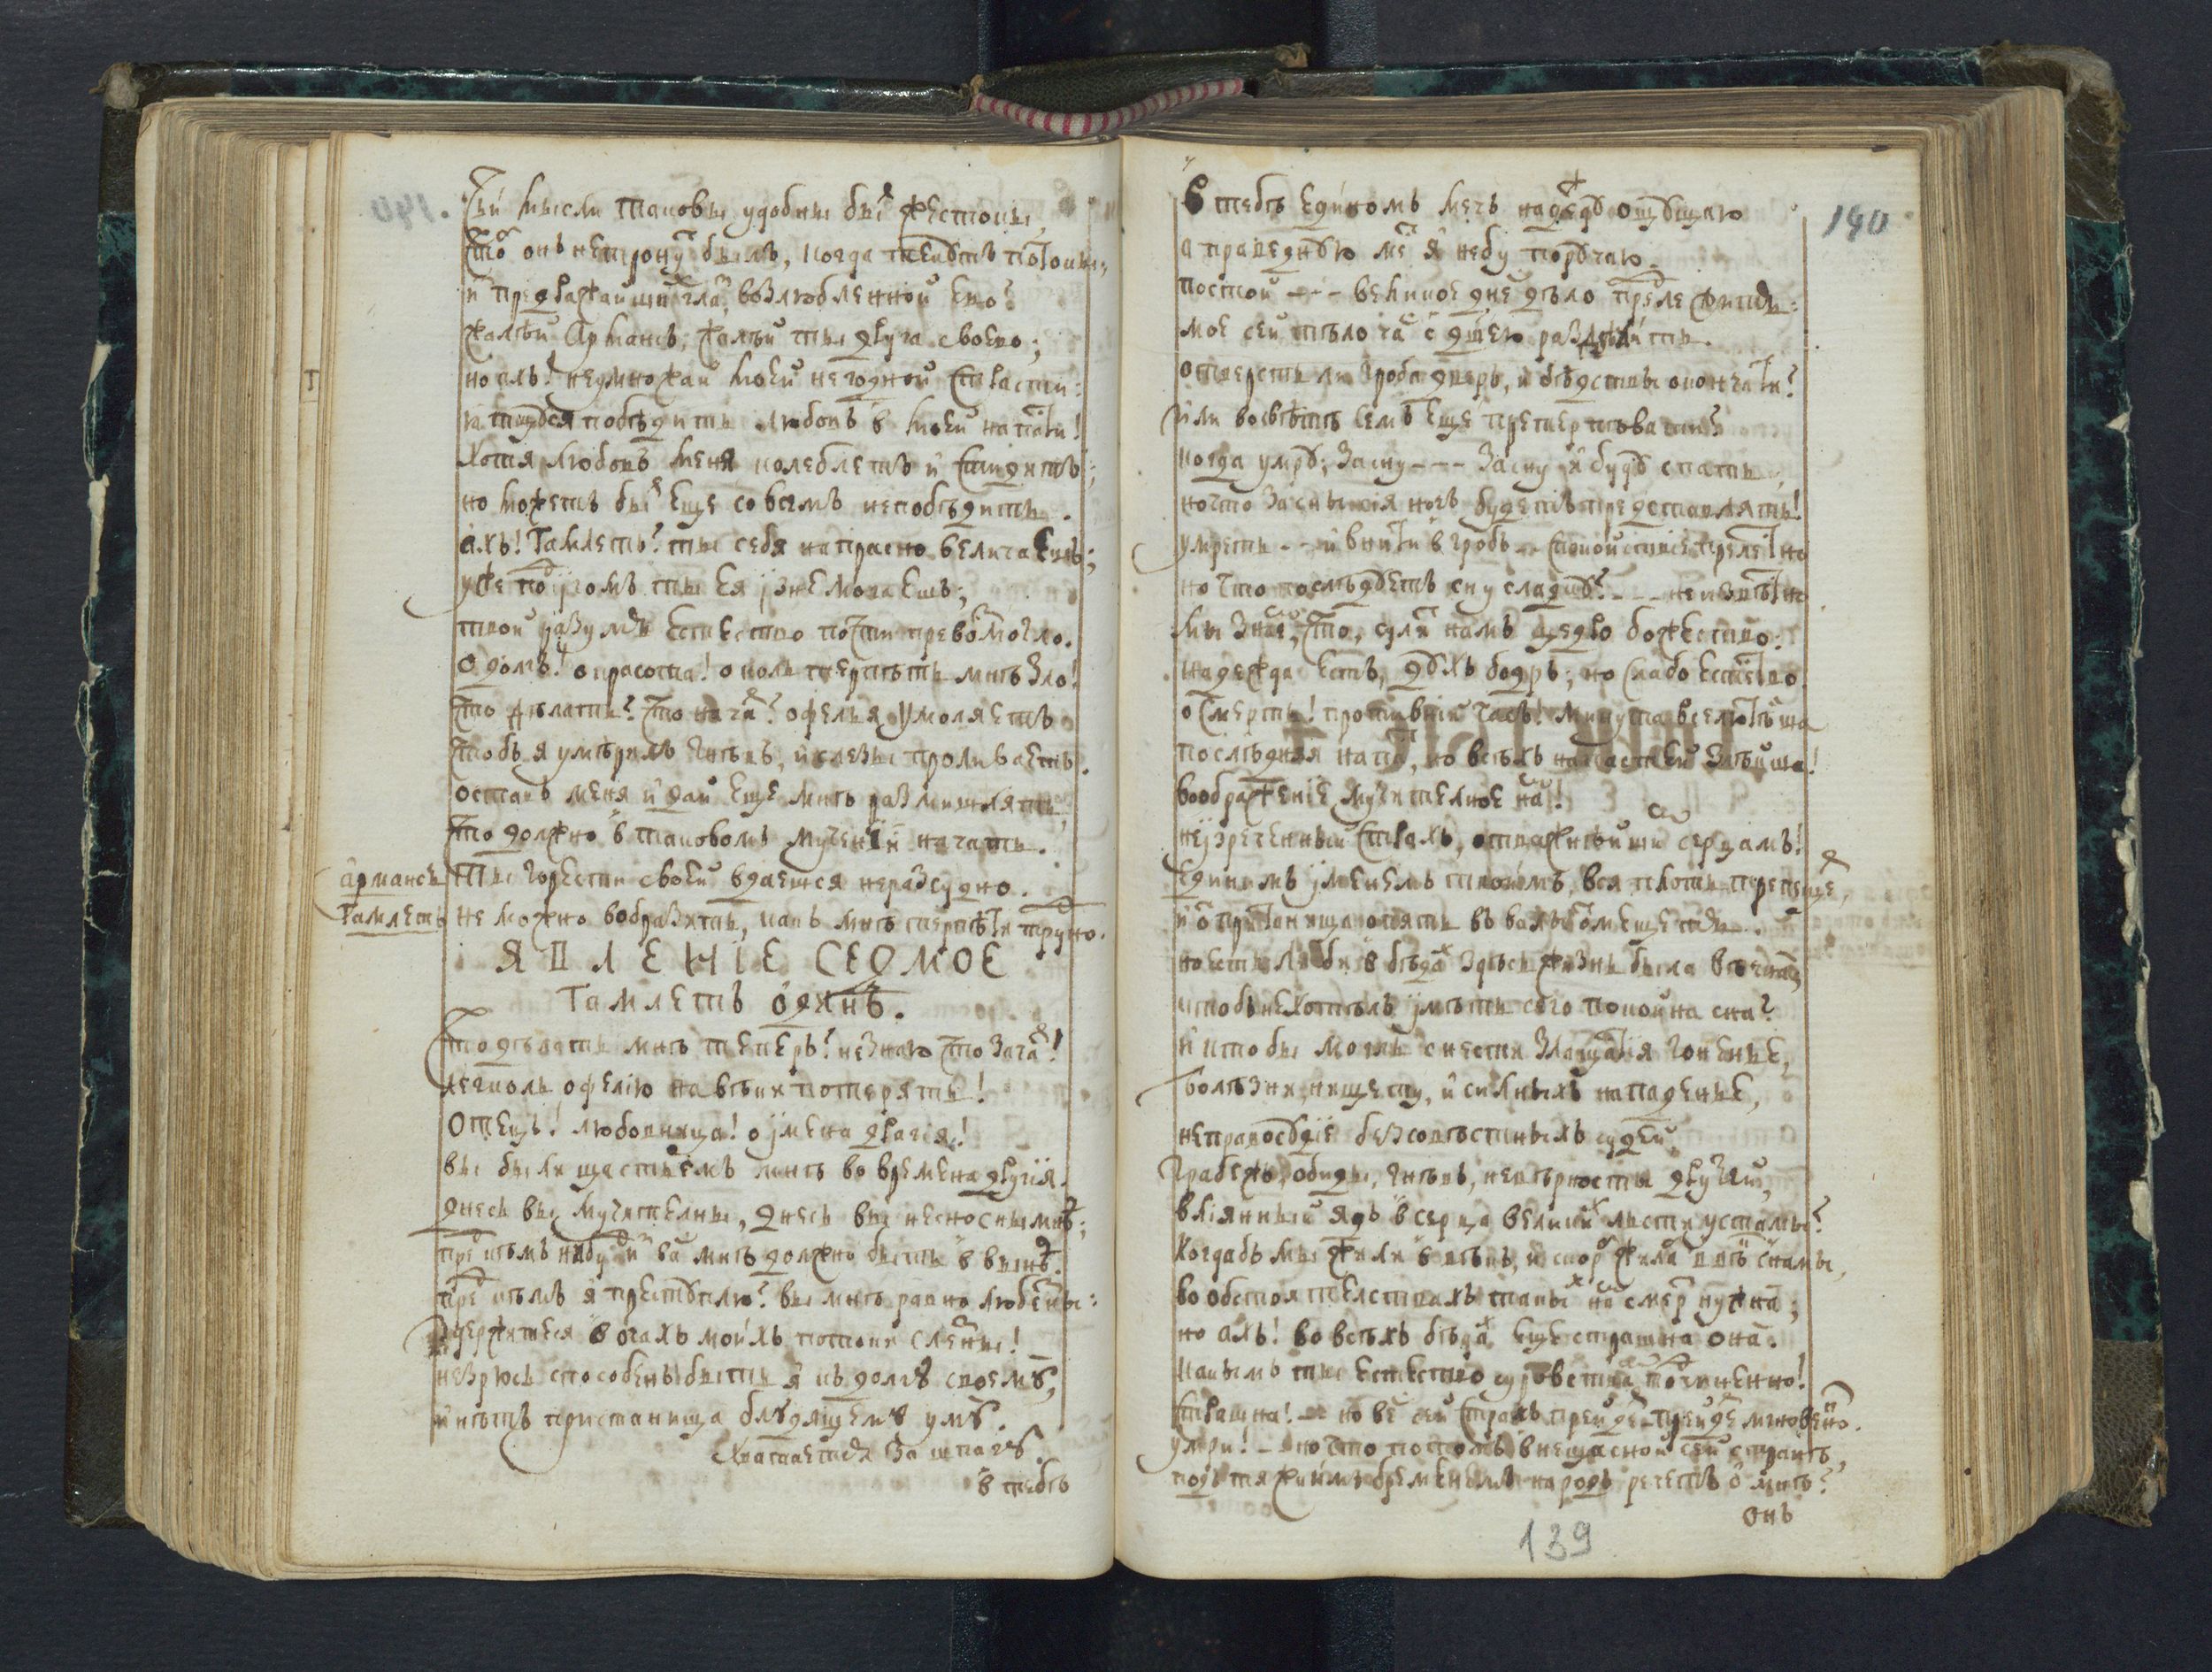 Чьи мысли таковы удобны быт жестоки,
Что онъ нетронут былъ, когда текутъ потоки,
и предражайших глаз возлюбленной ево?
жалѣй Армансъ, жалѣй ты друга своево;
но алъ? неумножай моей негодной страсти:
я тщуся побѣдить любовь в моей напасти!
Хотя любовь меня колеблетъ и стыдитъ;
но можетъ быт еще совсѣмъ непобѣдитъ.
ахъ! Гамлетъ? ты себя напрасно величаешь;
уже под игомъ ты ея изнемогаешь;
твой разумъ естество почти превозмогло.
О долгъ! о красота! о коль терпѣть мнѣ зло!
Что дѣлать? Что начат? офелья умоляетъ
чтобъ я умѣрилъ гнѣвъ, и слезы проливаетъ.
оставь меня и дай еще мнѣ размышлять,
что должно в таковомъ мученїи начать.
Армансъ Ты горести своей вдаешся неразсудно.
Гамлетъ не можно вобразить, какъ мнѣ терпѣти трудно.
ЯВЛЕНІЕ СЕДМОЕ
Гамлетъ одинъ.
Что дѣлать мнѣ теперь? незнаю что зачат!
легколь офелїю на вѣки потерять!
Отецъ! любовница! о имена драгїя!
вы были щастьемъ мнѣ во времена другїя.
днесь вы мучителны, днесь вы несносны мнѣ;
пред кѣмъ нибуд из вас мнѣ должно быть в винѣ.
пред кѣмъ я преступлю? вы мнѣ равно любезны:
держитеся в очахъ моихъ потоки слезны!
незрюсь способенъ быть я къ долгу своему,
и нѣтъ пристанища блудящему уму.
Хватается за шпагу.
в тебѣ
140
В тебѣ единомъ мечь надежду ощущаю
а праведную мест я небу поручаю.
постой --- великое днес дѣло предлежитъ:
мое сей тѣло час с душею раздѣлить.
отверсть ли гроба дверь, и бѣдствы окончати?
или восвѣтѣ семъ еще претерпѣвати?
когда умру; засну --- засну и буду спать,
но что за сны сїя ночь будетъ представлять!
умреть -- и внити в гробъ -- спокойствїе прелестно
но что послѣдуетъ сну сладку? --- неизвѣстно
мы знаем, что, сулит намъ щедро божество:
надежда есть, духъ бодръ; но слабо естество
о смерть! противный часъ! минута вселютѣйша
послѣдняя напасть, но всѣхъ напастей злѣйша!
воображенїе мучителное нам!
неизреченный страхъ, отважнѣйшим серцамъ!
единымъ именемъ твоимъ, вся плоть трепещет,
и от пристанища опять въ валы отмещетъ.
но естьлибъ в бѣдах здѣсь жизнь была вѣчна,
ктобъ нехотѣлъ имѣть сего покойна сна?
И ктобы могъ снести злащастїя гоненье,
болѣзни, нищету, и силныхъ нападенье,
неправосудїе безсовѣстныхъ судей
грабежъ, обиды, гнѣвъ, невѣрность друзей,
влїянный ядъ в серца великих лести устами?
Когдабъ мы жили в вѣкъ, и скорбь жилаб в вѣкъ снами,
во обстоятелствахъ такихъ нам смерть нужна;
но ахъ! во всѣхъ бѣдах еще страшна она.
какимъ ты естество суровствам подчиненно!
страшна! -- но весь сей страхъ прейдет -- прейдет мгновенно.
умри! -- но что потомъ внещасной сей странѣ,
подъ тяжкимъ бременемъ народъ речетъ о мнѣ?
онъ
139